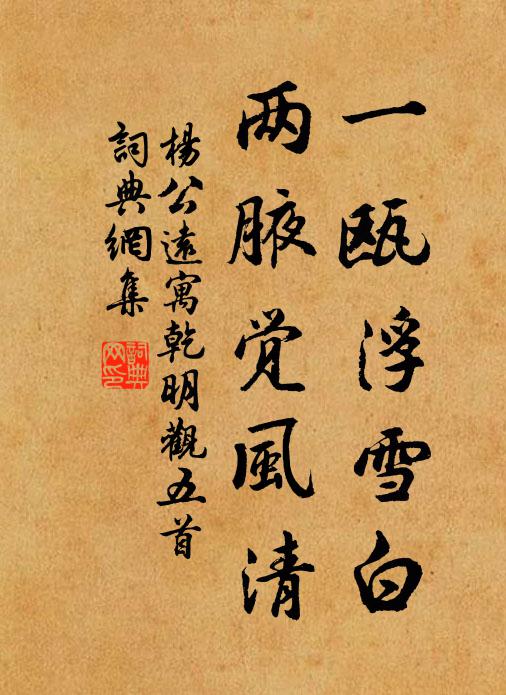 一瓯浮雪白
两腋觉風清
楊公遠寓乾明觀五首
詞典網集
詞典
网印